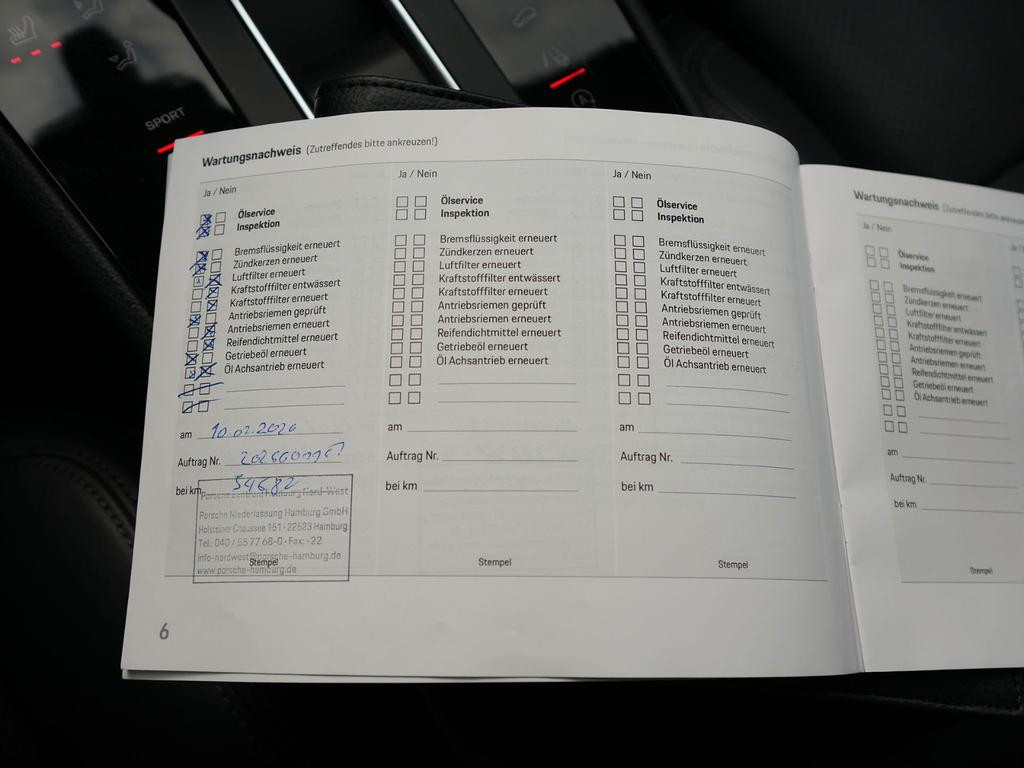 SPORT
Wartungsnachweis (Zutreffendes bitte ankreuzen!)
Ja / Nein
Ölservice
Inspektion
Bremsflüssigkeit erneuert
Zündkerzen erneuert
Luftfilter erneuert
Kraftstofffilter entwässert
Kraftstofffilter erneuert
Antriebsriemen geprüft
Antriebsriemen erneuert
Reifendichtmittel erneuert
Getriebeöl erneuert
Öl Achsantrieb erneuert
am 10.02.2020
Auftrag Nr.
bei km 54682
Porsche Zentrum Hamburg Nord-West
Porsche Niederlassung Hamburg GmbH
Holsteiner Chaussee 151 · 22523 Hamburg
Tel.: 040 / 55 77 68-0 · Fax: -22
info-nordwest@porsche-hamburg.de
www.porsche-hamburg.de
Stempel
Ja / Nein
Ölservice
Inspektion
Bremsflüssigkeit erneuert
Zündkerzen erneuert
Luftfilter erneuert
Kraftstofffilter entwässert
Kraftstofffilter erneuert
Antriebsriemen geprüft
Antriebsriemen erneuert
Reifendichtmittel erneuert
Getriebeöl erneuert
Öl Achsantrieb erneuert
am
Auftrag Nr.
bei km
Stempel
Ja / Nein
Ölservice
Inspektion
Bremsflüssigkeit erneuert
Zündkerzen erneuert
Luftfilter erneuert
Kraftstofffilter entwässert
Kraftstofffilter erneuert
Antriebsriemen geprüft
Antriebsriemen erneuert
Reifendichtmittel erneuert
Getriebeöl erneuert
Öl Achsantrieb erneuert
am
Auftrag Nr.
bei km
Stempel
6
Wartungsnachweis (Zutreffendes bitte
Ja / Nein
Ölservice
Inspektion
Bremsflüssigkeit erneuert
Zündkerzen erneuert
Luftfilter erneuert
Kraftstofffilter entwässert
Kraftstofffilter erneuert
Antriebsriemen geprüft
Antriebsriemen erneuert
Reifendichtmittel erneuert
Getriebeöl erneuert
Öl Achsantrieb erneuert
am
Auftrag Nr.
bei km
Stempel